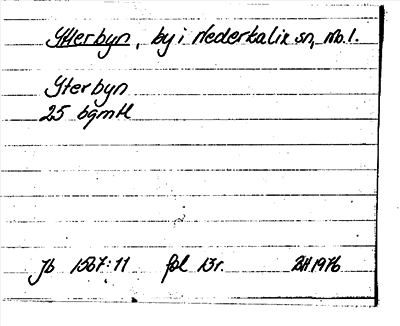 Ytterbyn, by i Nederkalix sn, Nb.l.
Yterbyn
25 bgmtl
Jb 1567:11 fol 13r. BH 1976